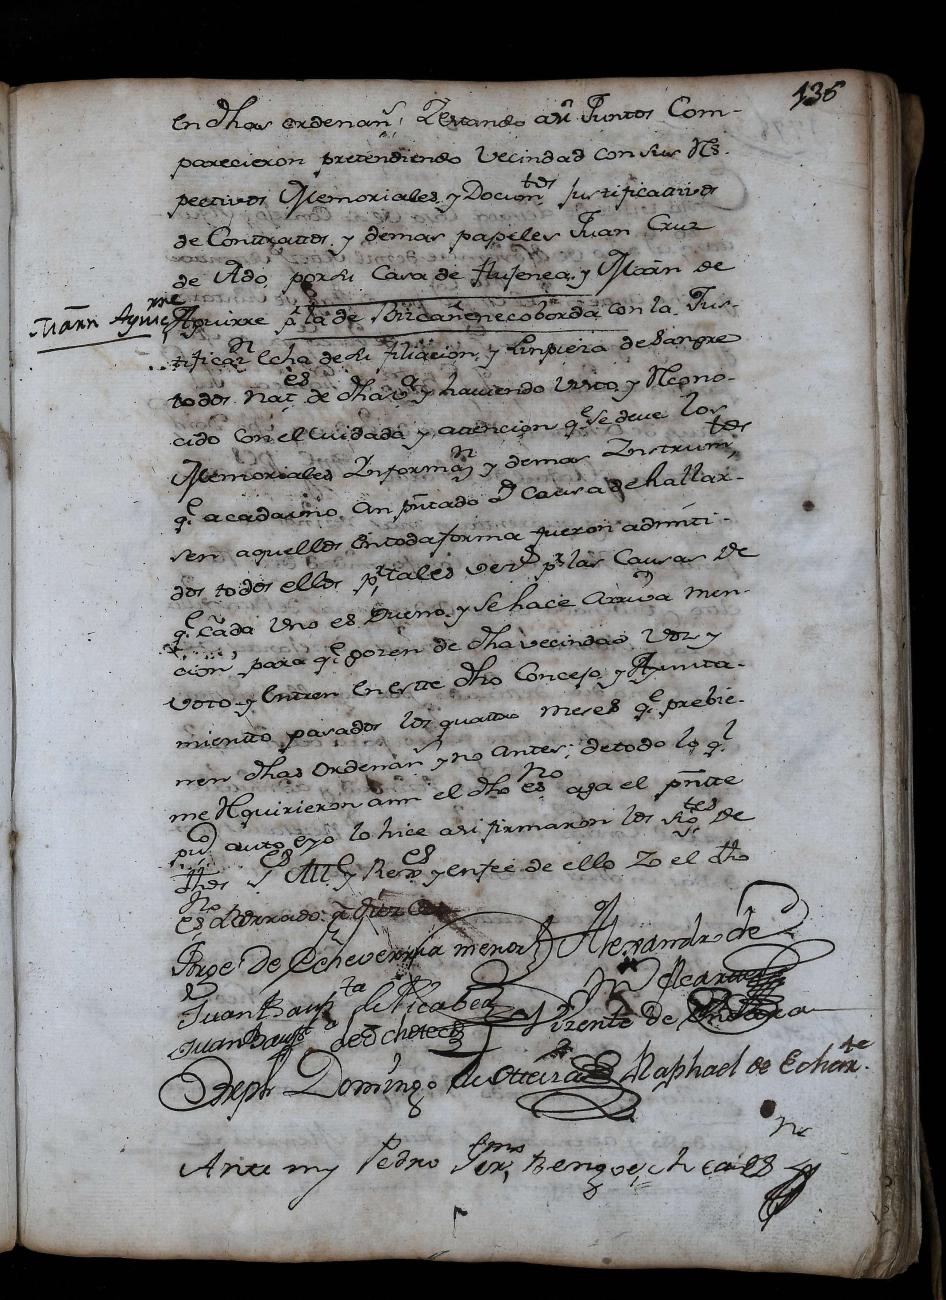 136
en dhas ordenans, Y estando asi Juntos Com-
parecieron pretendiendo Vecindad con sus Res-
pectivos Memoriales, y Documtos Justificativos
de Contratos, y demas papeles Juan Cruz
de Ado, por su Casa de y Martn de
Martin Aguirre
Aguirre pr la de Bizcañenecoborda con la Jus-
tificacn hcha de su filiacion, y limpieza de Sangre
todos nates de dha Va y haviendo visto, y Recono-
cido con el Cuidado y atencion qe se deve los
Memoriales Informan y demas Instrumtos
qe acada uno an presentado a Causa de hallar-
sen aquellos en toda forma fueron admiti-
dos todos ellos pr tales vezs pr las Causas de
qe Cada Uno es Dueno, y se hace arriva men-
cion, para qe gozen de dha vecindad, Voz y
Voto y entren en este dho Concejo, y Ayunta-
miento, pasados los quattro meses qe prebie-
nen dhas Ordenans y no antes; de todo lo ql
me Requirieron ami el dho esno aga el pnte
puco auto, e yo lo hice asi firmaron los sigtes de
dhos ses Alle y Rexes y enfee de ello Yo el dho
esno
Jorge de Echeverria menor Alexandro de
Juan Bauta de Picabea
Juan Bauta de Vizente de
Joseph Domingo de Raphael de
Ante my Pedro